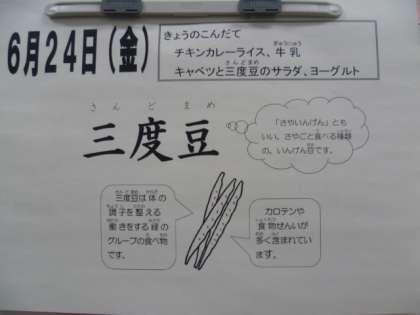 6月24日(金)
きょうのこんだて
チキンカレーライス、牛乳
ぎゅうにゅう
キャベツと三度豆のサラダ、ヨーグルト
さんどまめ
さんどまめ
三度豆
「さやいんげん」とも
いい、さやごと食べる種類
の、いんげん豆です。
三度豆は体の
調子を整える
働きをする緑の
グループの食べ物
です。
カロテンや
食物せんいが
多く含まれてい
ます。